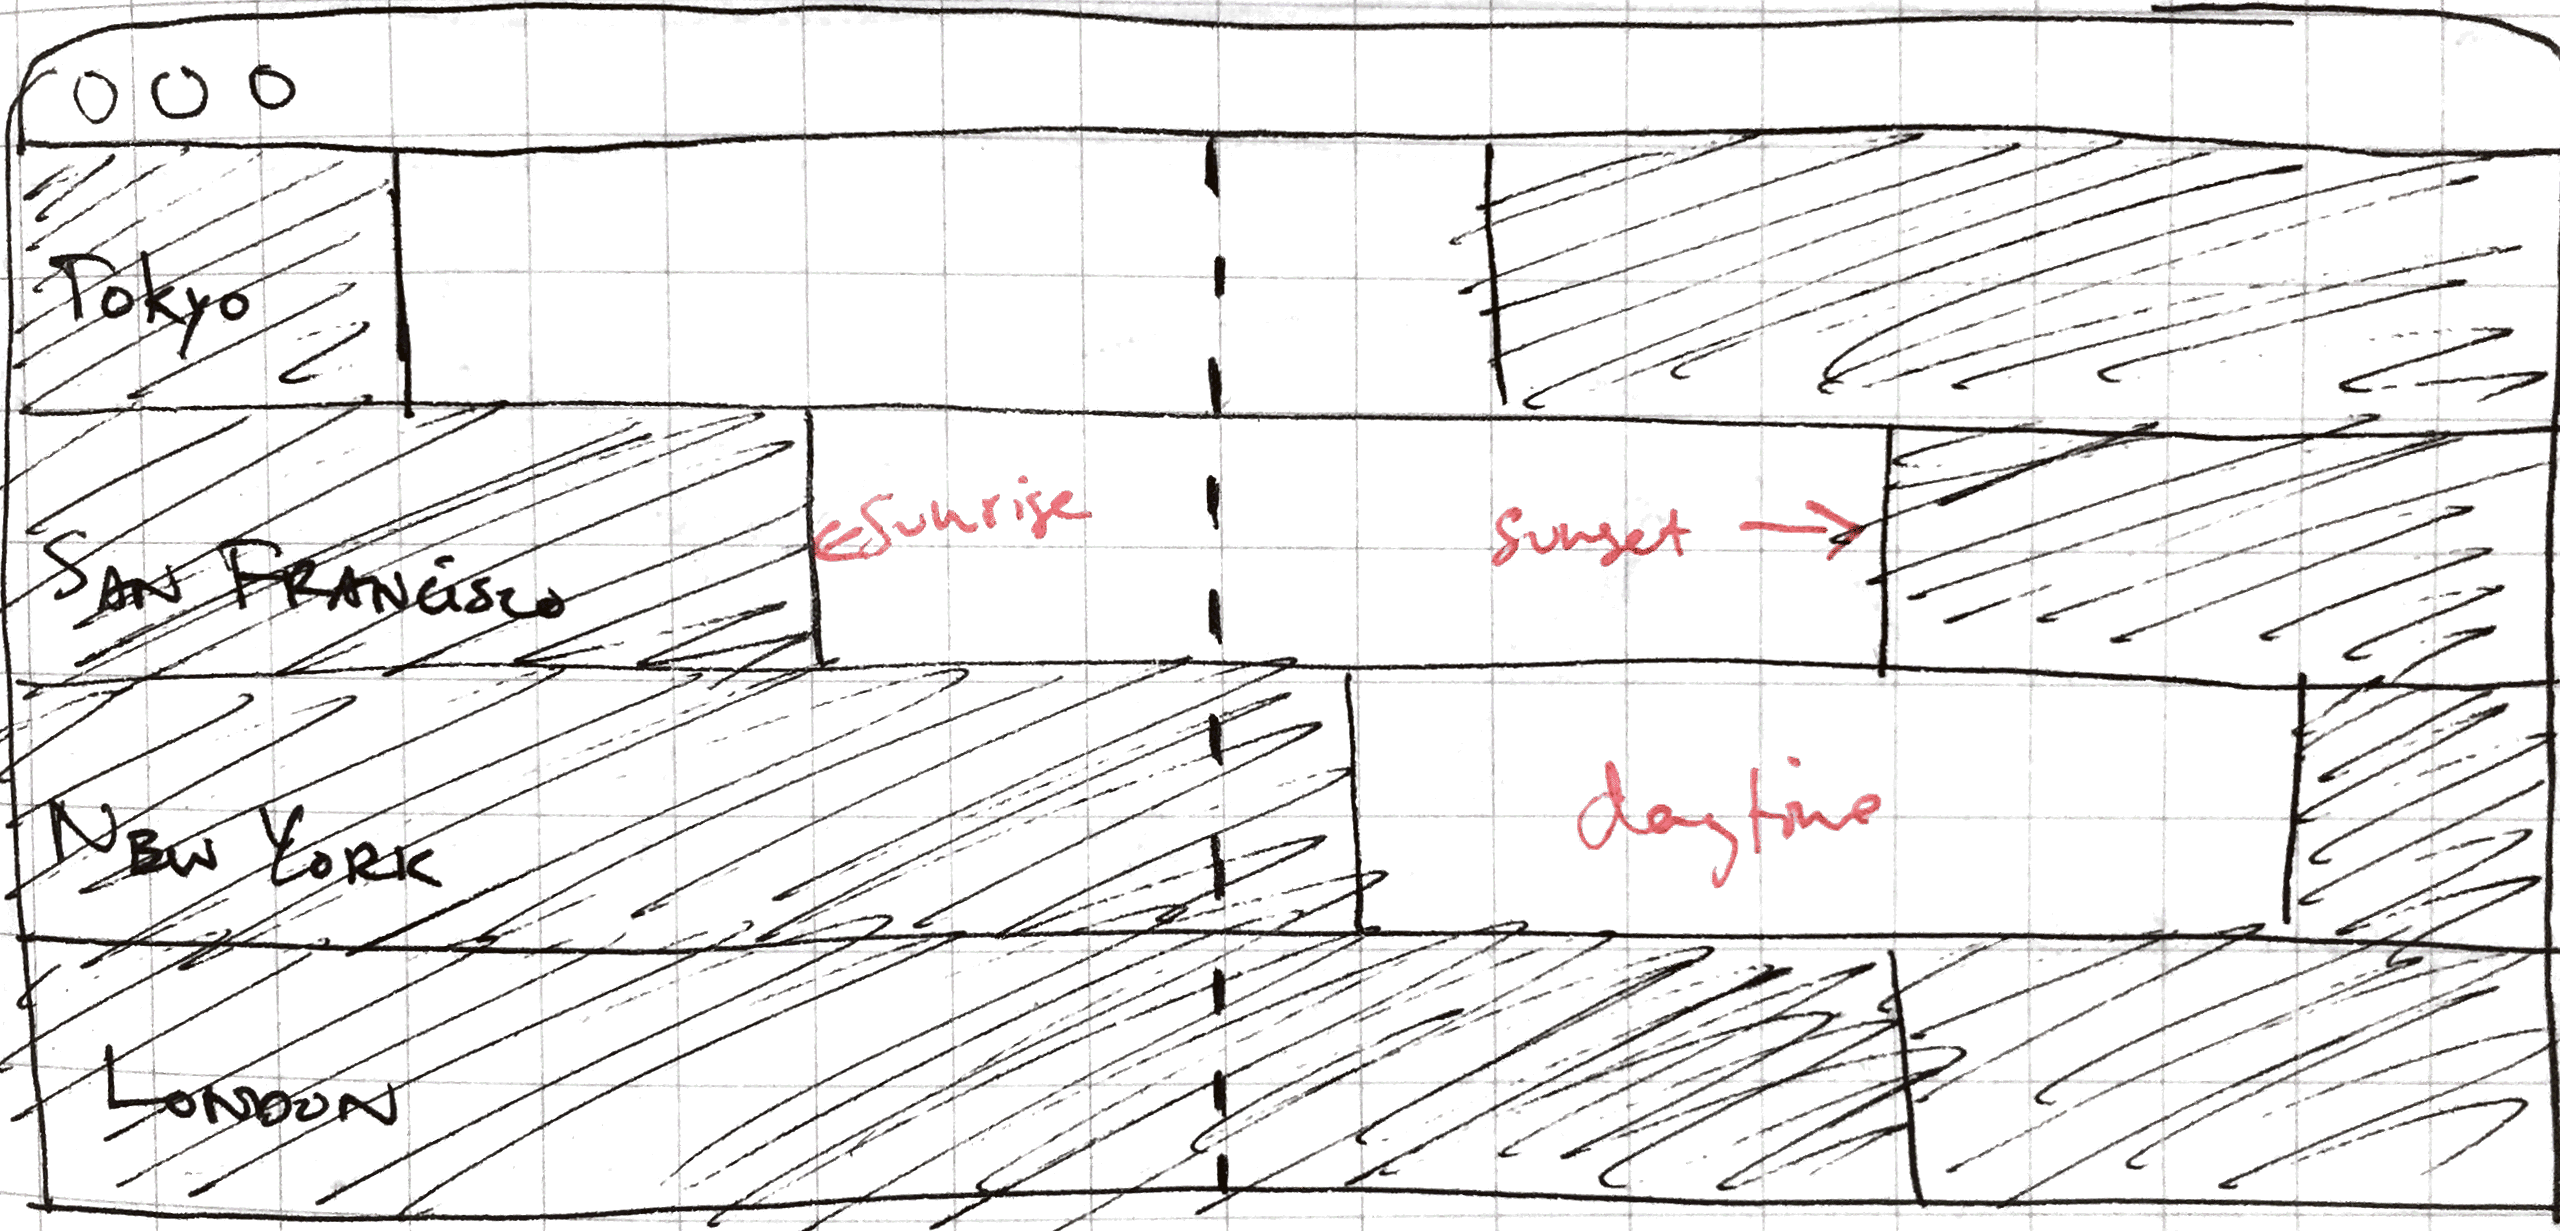 Tokyo
SAN FRANCISCO
←Sunrise
Sunset →
NEW YORK
daytime
LONDON